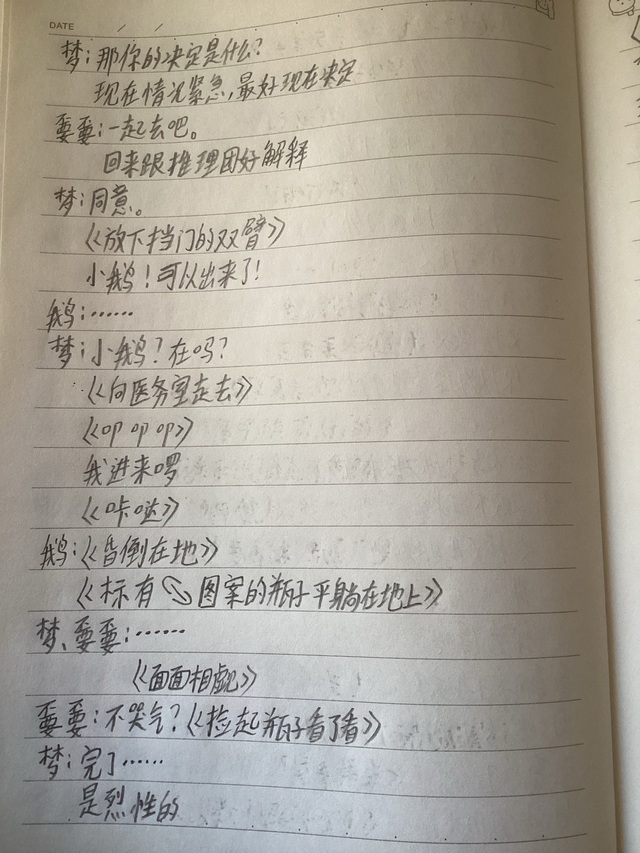 DATE / /
梦:那你的决定是什么?
现在情况紧急,最好现在决定
耍耍:一起去吧。
回来跟推理团好解释
梦:同意。
《放下挡门的双臂》
小鹅!可以出来了!
鹅:……
梦:小鹅?在吗?
《向医务室走去》
《叩叩叩》
我进来啰
《咔哒》
鹅:《昏倒在地》
《标有 图案的瓶子平躺在地上》
梦、耍耍:……
《面面相觑》
耍耍:不哭气?《捡起瓶子看了看》
梦:完了……
是烈性的